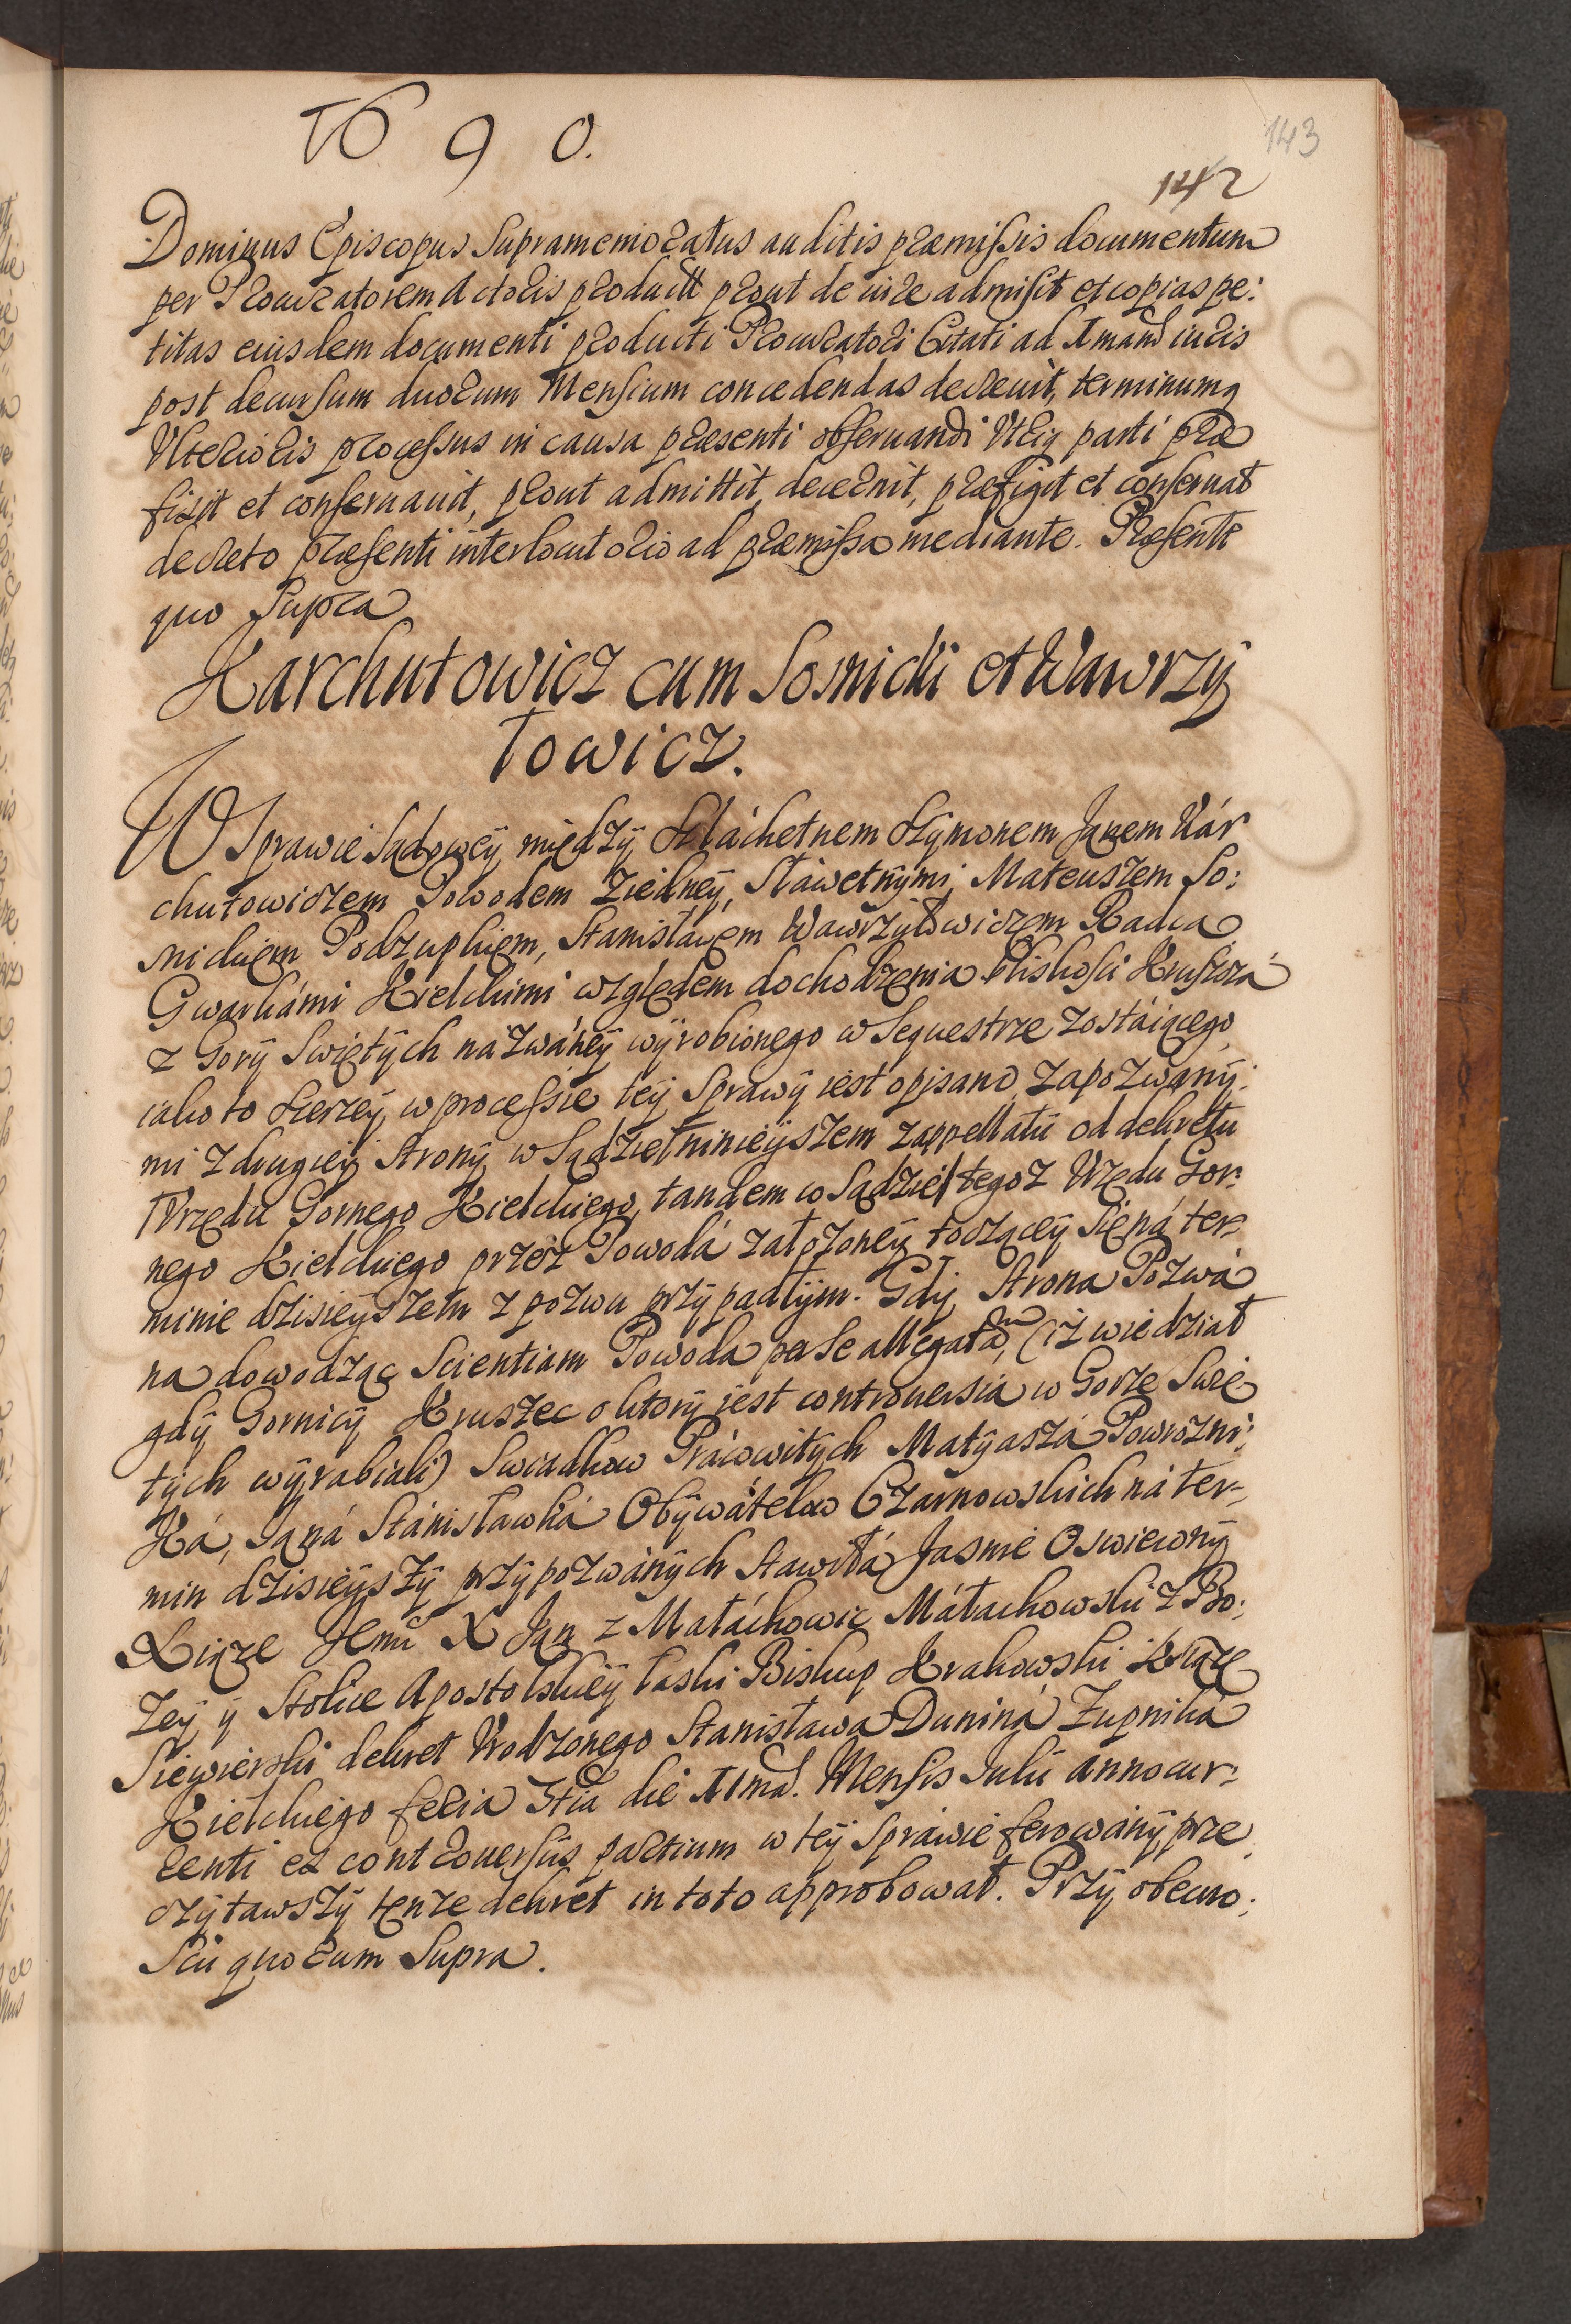 1690.
143
142
Dominus Episcopus Supramemoratus auditis præmissis documentum
per Procuratorem Actoris product prout de iure admisit et copias pe:
titas eiusdem documenti producti Procuratori Citati ad Amand iuris
post decursum duorum Mensium concedendas decreuit, terminumq
Vlterioris processus in causa præsenti obseruandi Vtriq parti præ
fixit et conseruauit, prout admittit, decernit, præfigit et conseruat
decreto præsenti interlocutorio ad præmissa mediante. Præsentt
quo Supra
Karchutowicz cum Sosnicki et Wawrzy
łowicz.
W Sprawie Sądowey między Szláchetnem Szymonem Janem Kár
chutowiczem Powodem ziedney, Sławetnymi Mateuszem So:
snickiem Podzupkiem, Stanisławem Wawrzyłowiczem Radca
Gwarkámi Kielckimi względem dochodzenia bliskosci Kruszcá
z Gory Swiętych názwáney wyrobionego w Sequestrze zostáiącego
iako to szerzey w processie tey Sprawy iest opisano, zapozwany:
mi z drugiey Strony w Sądzie ninieyszem z appellatii od dekretu
Vrzędu Gornego Kielckiego, tandem w Sądzie tegoz Vrzędu Gor:
nego Kielckiego przez Powodá załozoney toczącey się ná ter:
minie dzisieyszem z pozwu przypadłym. Gdy Strona Pozwá
na dowodząc Scientiam Powoda per se allegatam, (iz wiedział
gdy Gornicy Kruszec o ktory iest controuersia w Gorze Swię
tych wyrabiali) Swiadkow Prácowitych Matyaszá Powrozni:
ká, Janá Stánisławká Obywátelow Czarnowskich ná ter:
min dzisieyszy przypozwánych stawiłá, Jasnie Oswiecony
Xiąze Jemć X Jan z Małáchowic Máłachowski z Bo:
zey y Stolice Apostolskiey łaski Biskup Krakowski Xiąze
Siewierski dekret Vrodzonego Stanisława Duniná Zupniká
Kielckiego feria 3tia die XImá. Mensis Iulii anno cur:
renti ex controuersiis partium w tey Sprawie ferowány prze
czytawszy tenze dekret in toto approbował. Przy obecno:
sci quorum Supra.